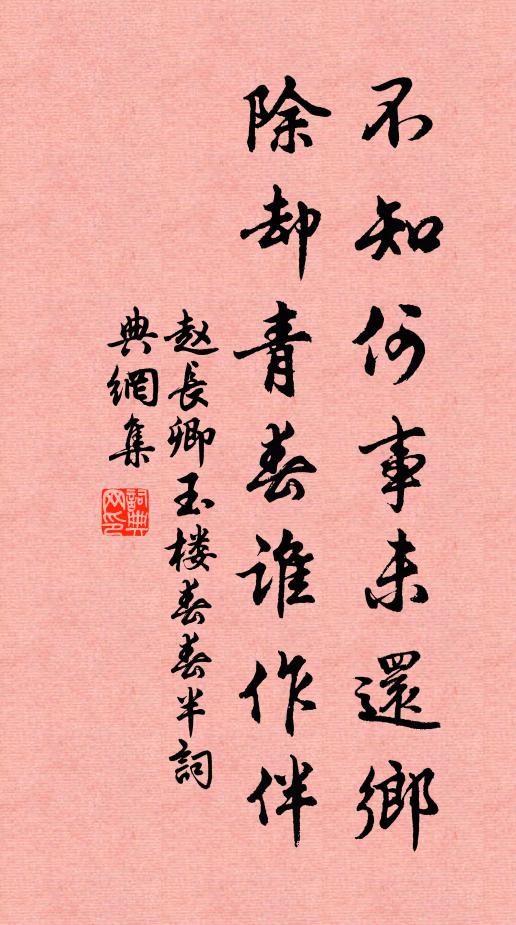 不知何事未還鄉
除却青春誰作伴
赵長卿玉楼春春半詞
典網集
詞典网印